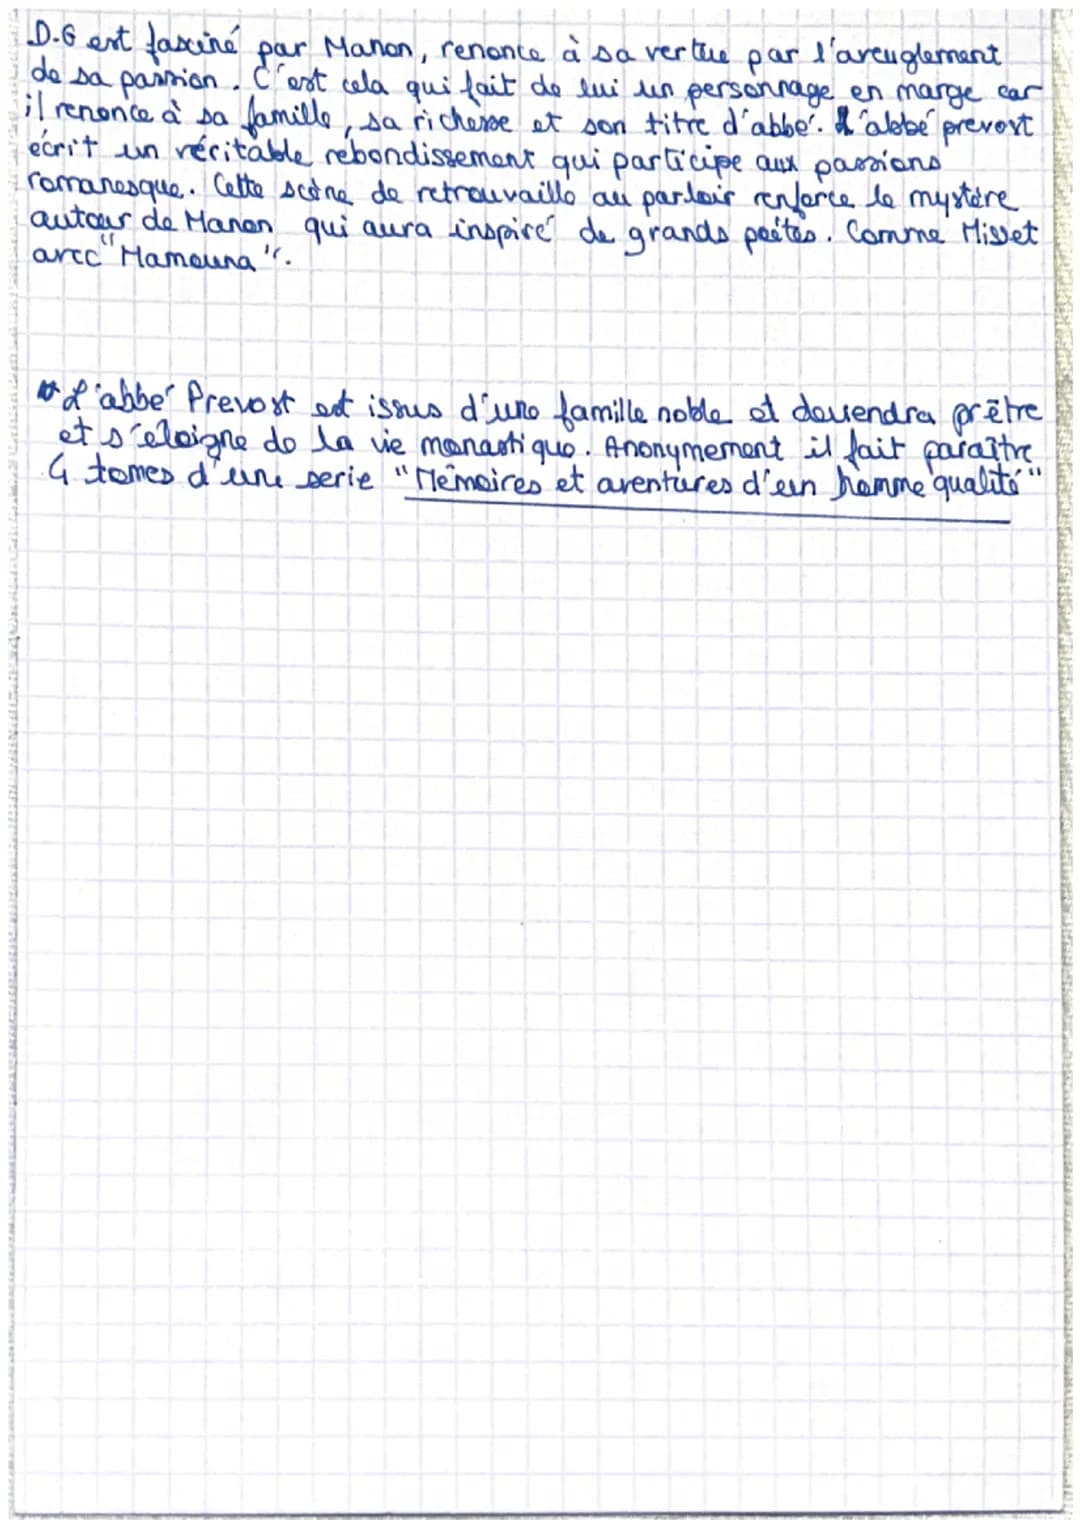 D.G est fasciné par Manon, renonce à sa vertue par l'aveuglement
de sa passion. C'est cela qui fait de lui un personnage en marge car
il renonce à sa famille, sa richesse et son titre d'abbé. L'abbé prevost
écrit un véritable rebondissement qui participe aux passions
romanesque. Cette scène de retrouvaille au parloir renforce le mystère
autour de Manon qui aura inspiré de grands poètes. Comme Misset
avec "Mamouna".
L'abbé Prevost est issus d'une famille noble et deviendra prêtre
et s'éloigne de la vie monastique. Anonymement il fait paraître
4 tomes d'une serie "Mémoires et aventures d'un homme qualité"